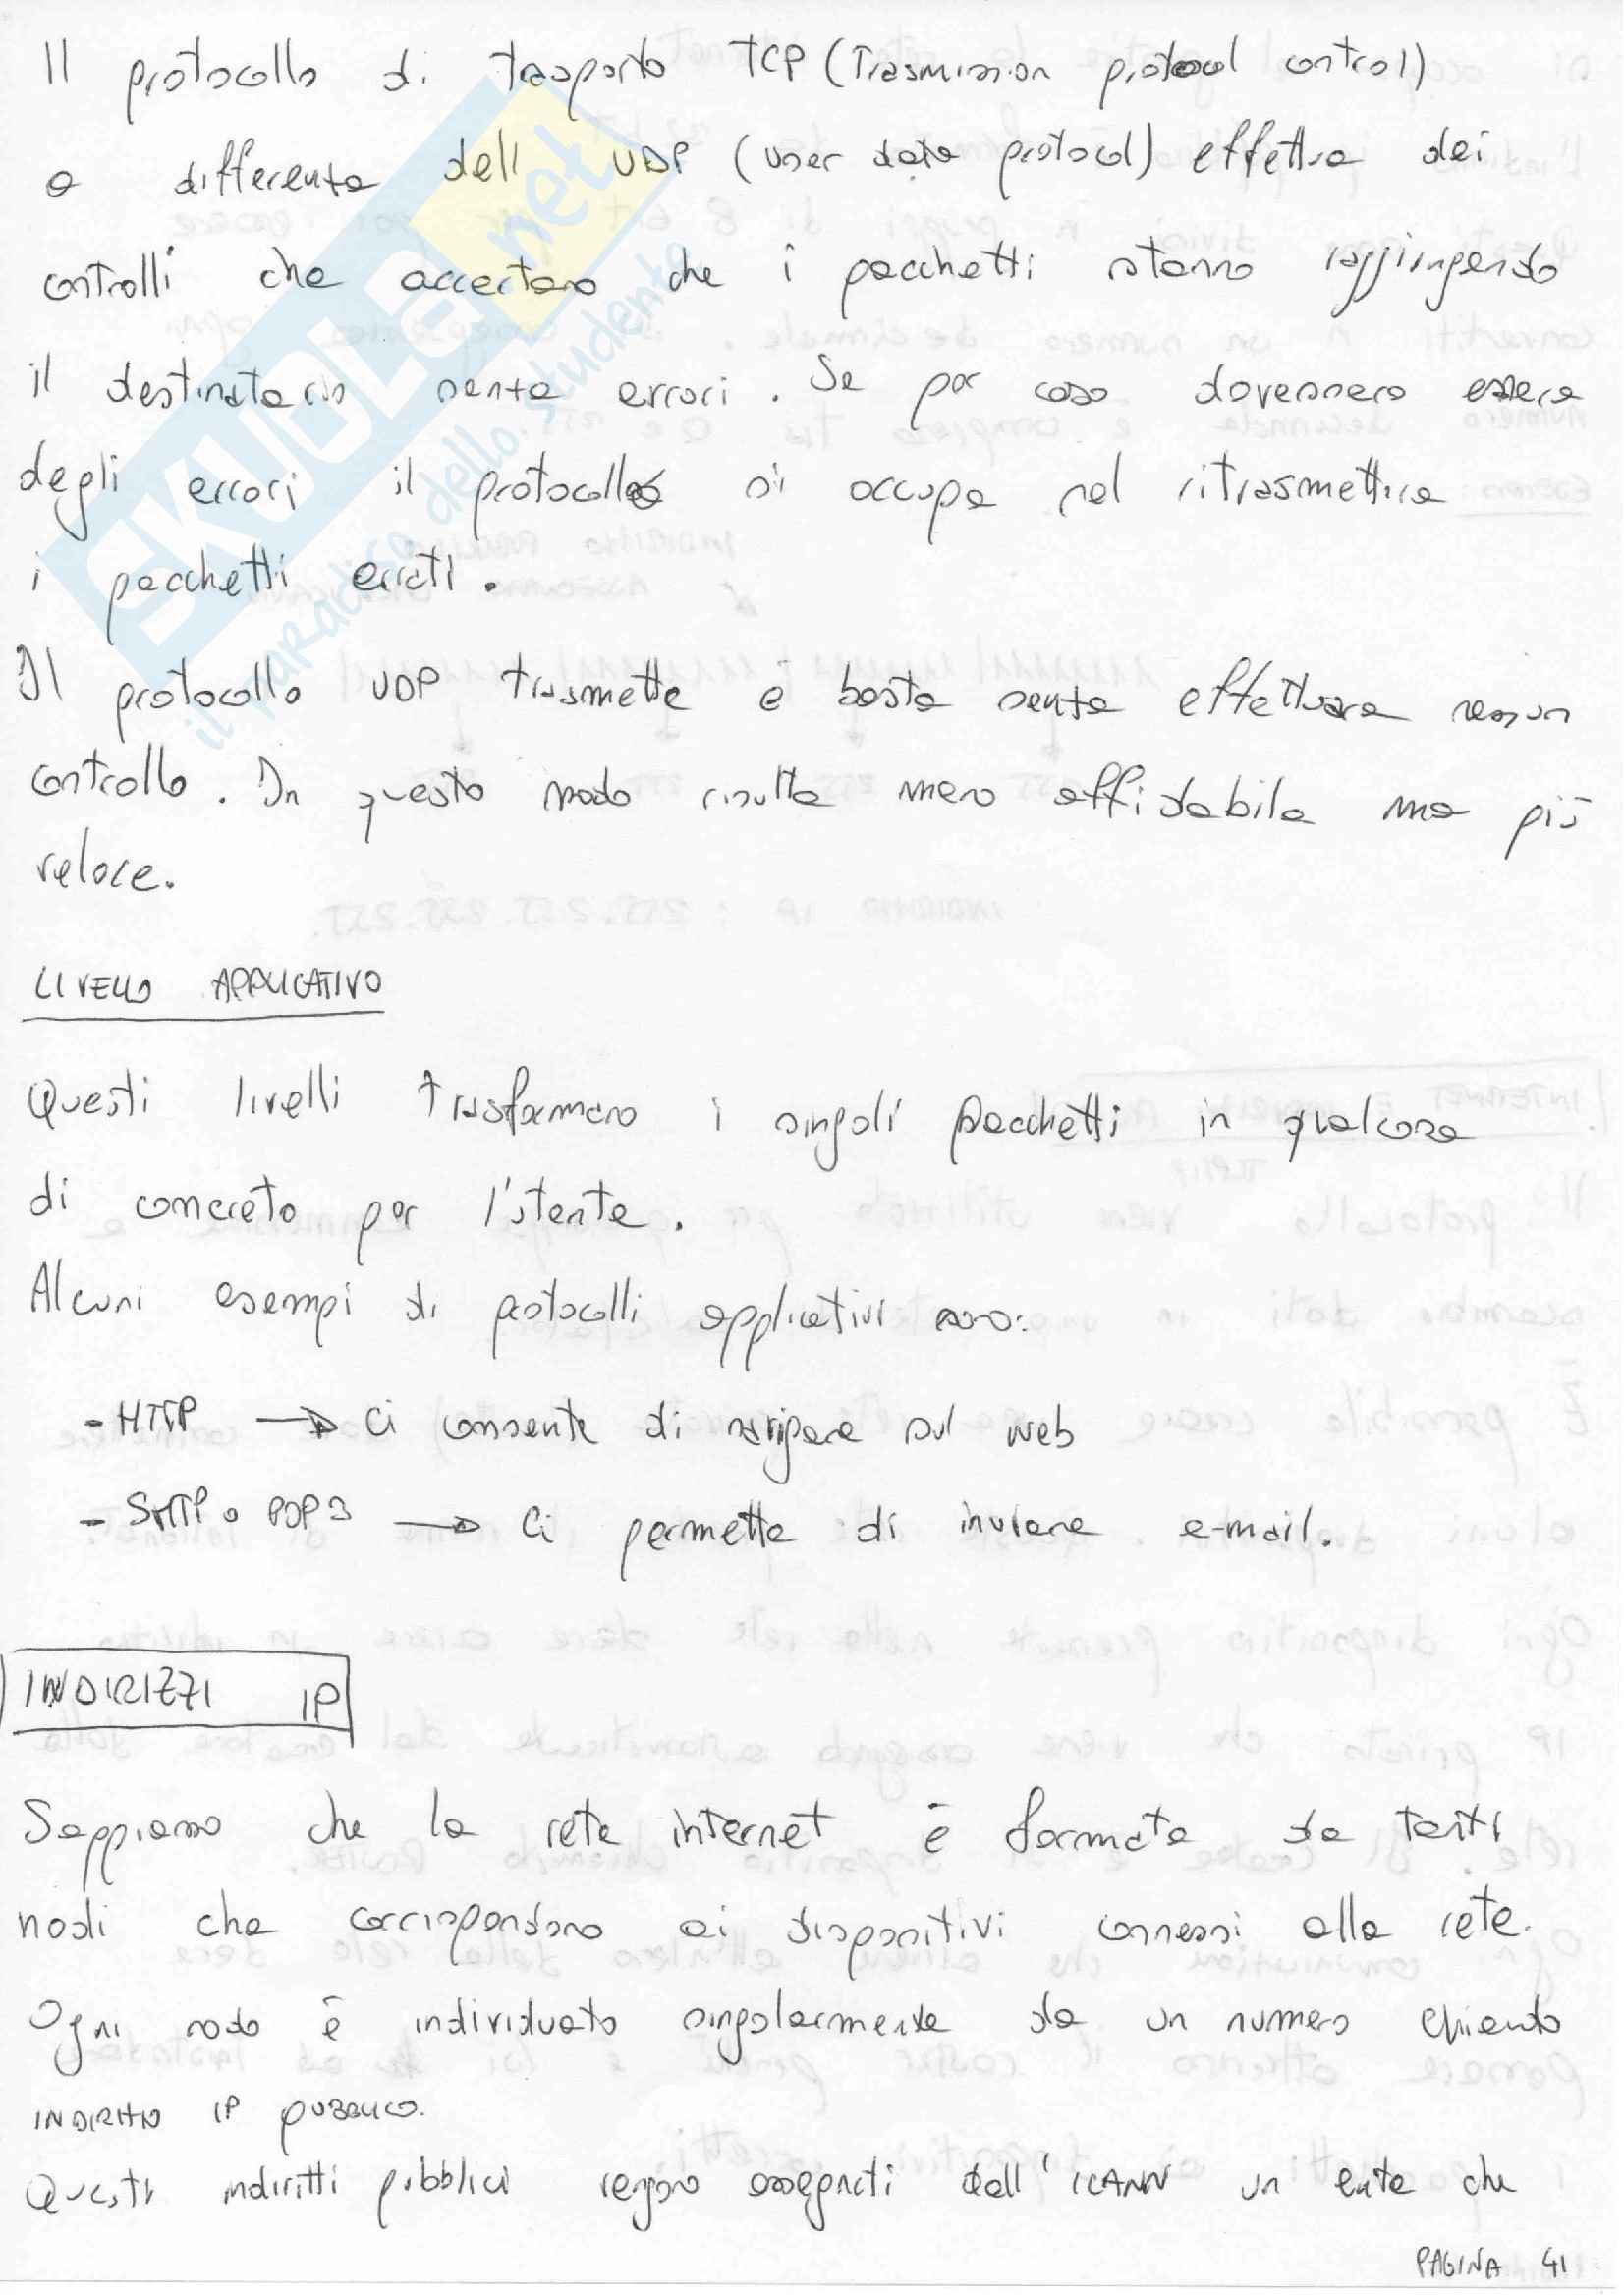 Il protocollo di trasporto TCP (Trasmission protocol control)
a differenza dell UDP (user data protocol) effettua dei
controlli che accertano che i pacchetti stanno raggiungendo
il destinatario senza errori. Se per caso dovessero essere
degli errori il protocollo si occupa nel ritrasmettere
i pacchetti errati.
Il protocollo UDP trasmette e basta senza effettuare nessun
controllo. In questo modo risulta meno affidabile ma più
veloce.
LIVELLO APPLICATIVO
Questi livelli trasformano i singoli pacchetti in qualcosa
di concreto per l'utente.
Alcuni esempi di protocolli applicativi sono:
- HTTP → ci consente di navigare sul web
- SMTP o POP3 → ci permette di inviare e-mail.
INDIRIZZI IP
Sappiamo che la rete internet è formata da tanti
nodi che corrispondono ai dispositivi connessi alla rete.
Ogni nodo è individuato singolarmente da un numero chiamato
INDIRIZZO IP PUBBLICO.
Questi indirizzi pubblici vengono assegnati dall'ICANN un ente che
PAGINA 41
SKUOLA.net
il paradiso dello studente